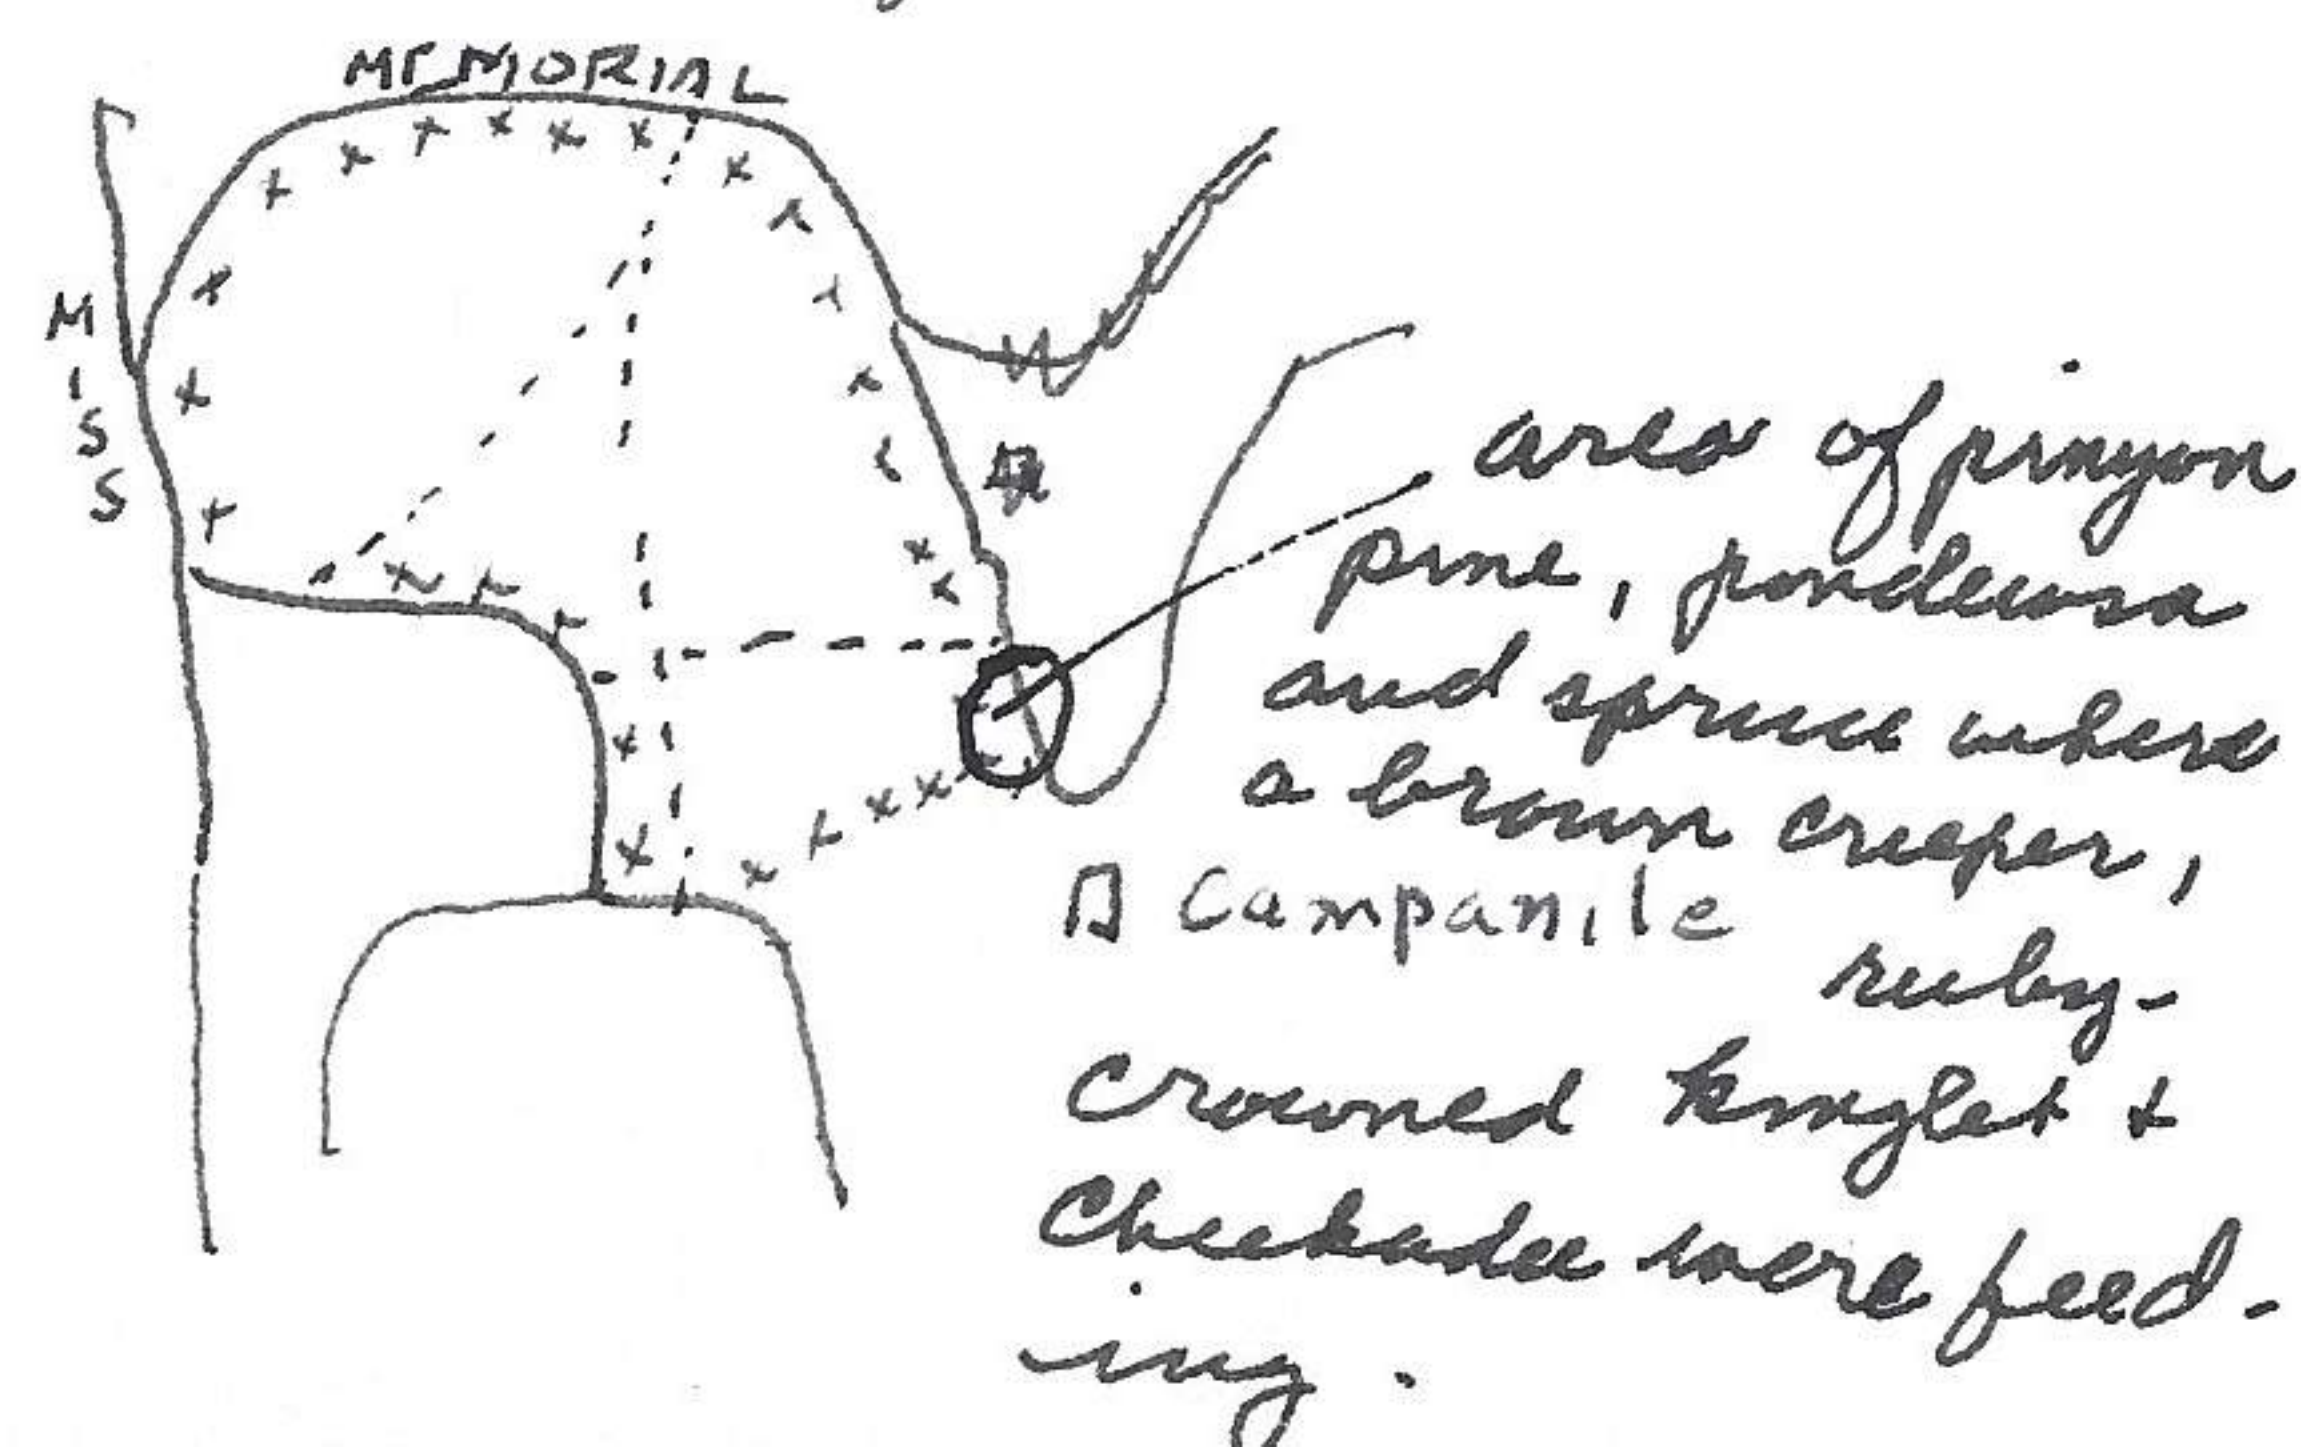 MEMORIAL
MISS
area of pinyon
pine, ponderosa
and spruce where
a brown creeper,
Campanile
ruby-
crowned kinglet +
Chickadee were feed-
ing.